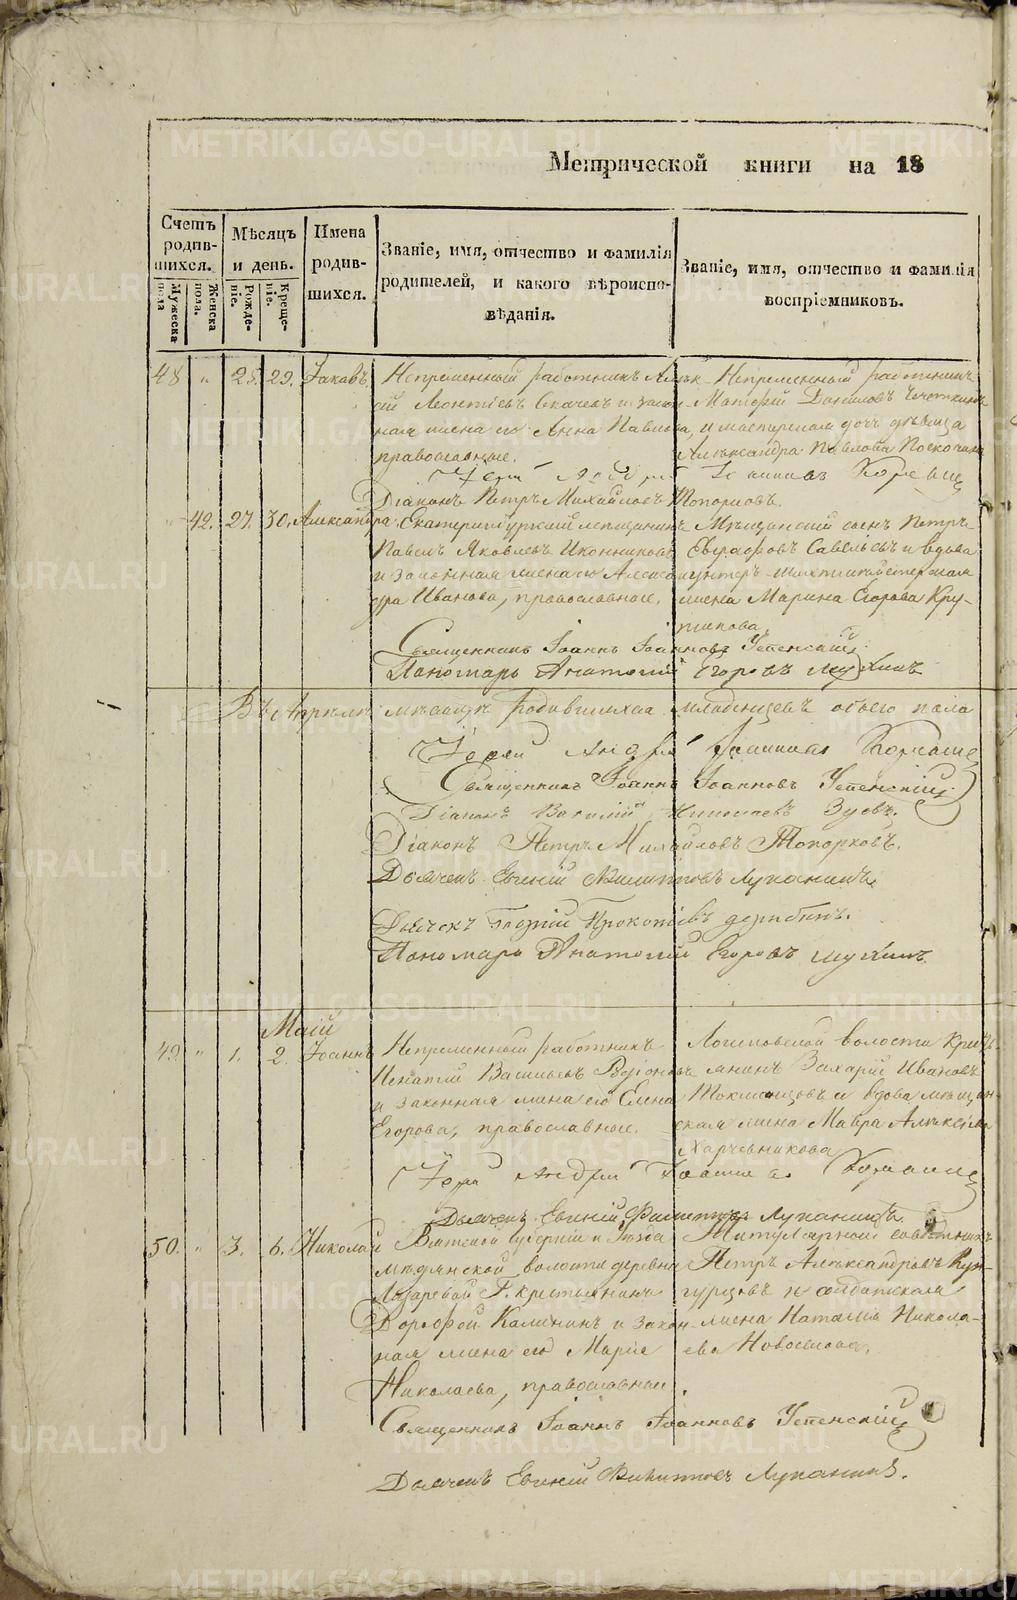 METRIKI.GASO-URAL.RU
Метрической книги на 18
Счетъ родив-шихся.
Мужеска пола
Женска пола.
Мѣсяцъ и день.
Рожде-ніе.
Креще-ніе.
Имена родив-шихся.
Званіе, имя, отчество и фамилія
родителей, и какого вѣроиспо-
вѣданія.
Званіе, имя, отчество и фамилія
воспріемниковъ.
48 " 25. 29. Іаковъ
Непременный работникъ Алек-
сій Леонтіевъ Скачевъ и закон-
ная жена его Анна Павлова,
православные.
Непременный работникъ
Матфій Даниловъ
и мастерская дочь дѣвица
Александра Павлова
Іерей Андрей Іоанновъ
Діаконъ Петръ Михайловъ Топорковъ.
" 42. 27. 30. Александра
Екатеринбургскій мещанинъ
Павелъ Яковлевъ Иконниковъ
и законная жена его Алексан-
дра Иванова, православные.
Мѣщанскій сынъ Петръ
Евграфовъ Савельевъ и вдова
унтеръ-шихтмейстерская
жена Марина Егорова Кру-
пикова.
Священникъ Іоаннъ Іоанновъ Успенскій
Пономарь Анатолій Егоровъ Мухинъ
Въ Апрѣлѣ мѣсяцѣ родившихся младенцевъ обоего пола
Іерей Андрей Іоанновъ
Священникъ Іоаннъ Іоанновъ Успенскій
Діаконъ Василій Николаевъ Зуевъ.
Діаконъ Петръ Михайловъ Топорковъ.
Дьячекъ Евгеній Филипповъ Лупанинъ.
Дьячекъ Георгій Прокопіевъ Дерябинъ.
Пономарь Анатолій Егоровъ Мухинъ.
Маій
49. " 1. 2. Іоаннъ
Непременный работникъ
Игнатій Васильевъ
и законная жена его Елена
Егорова, православные.
Логиновской волости крест-
янинъ Захарій Ивановъ
и вдова мѣщан-
ская жена Мавра Алексѣева
Харчевникова
Іерей Андрей Іоанновъ
Дьячекъ Евгеній Филипповъ Лупанинъ
50. " 3. 6. Николай
Вятской губерніи и уѣзда
Медянской волости деревни
Лазаревой Г. крестьянинъ
Дорофей Калининъ и закон-
ная жена его Марія
Николаева, православные.
Титулярной советникъ
Петръ Александровъ Кун-
гурцовъ и солдатская
жена Наталія Никола-
ева Новоселова.
Священникъ Іоаннъ Іоанновъ Успенскій
Дьячекъ Евгеній Филипповъ Лупанинъ.